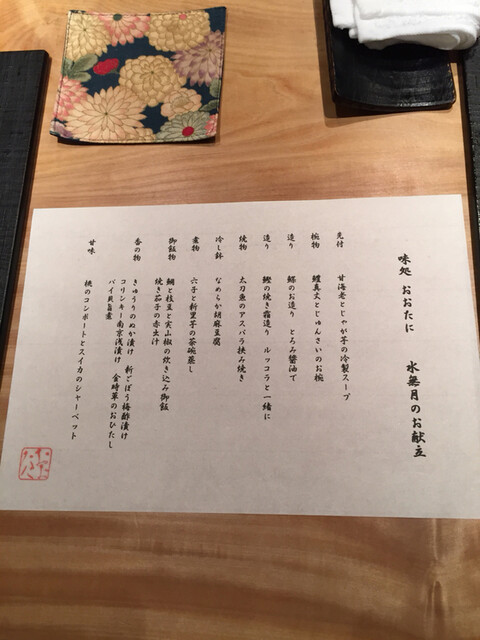 味処 おおたに 水無月のお献立
先付 甘海老とじゃが芋の冷製スープ
椀物 鱧真丈とじゅんさいのお椀
造り 鰹のお造り とろみ醤油で
造り 鱧の焼き霜造り ルッコラと一緒に
焼物 太刀魚のアスパラ挟み焼き
冷し鉢 なめらか胡麻豆腐
煮物 六子と新里芋の茶碗蒸し
御飯物 鯛と枝豆と実山椒の炊き込み御飯
焼き茄子の赤出汁
香の物 きゅうりのぬか漬け 新ごぼう梅酢漬け
コリンキー南京浅漬け 金時草のおひたし
バイ貝旨煮
甘味 桃のコンポートとスイカのシャーベット